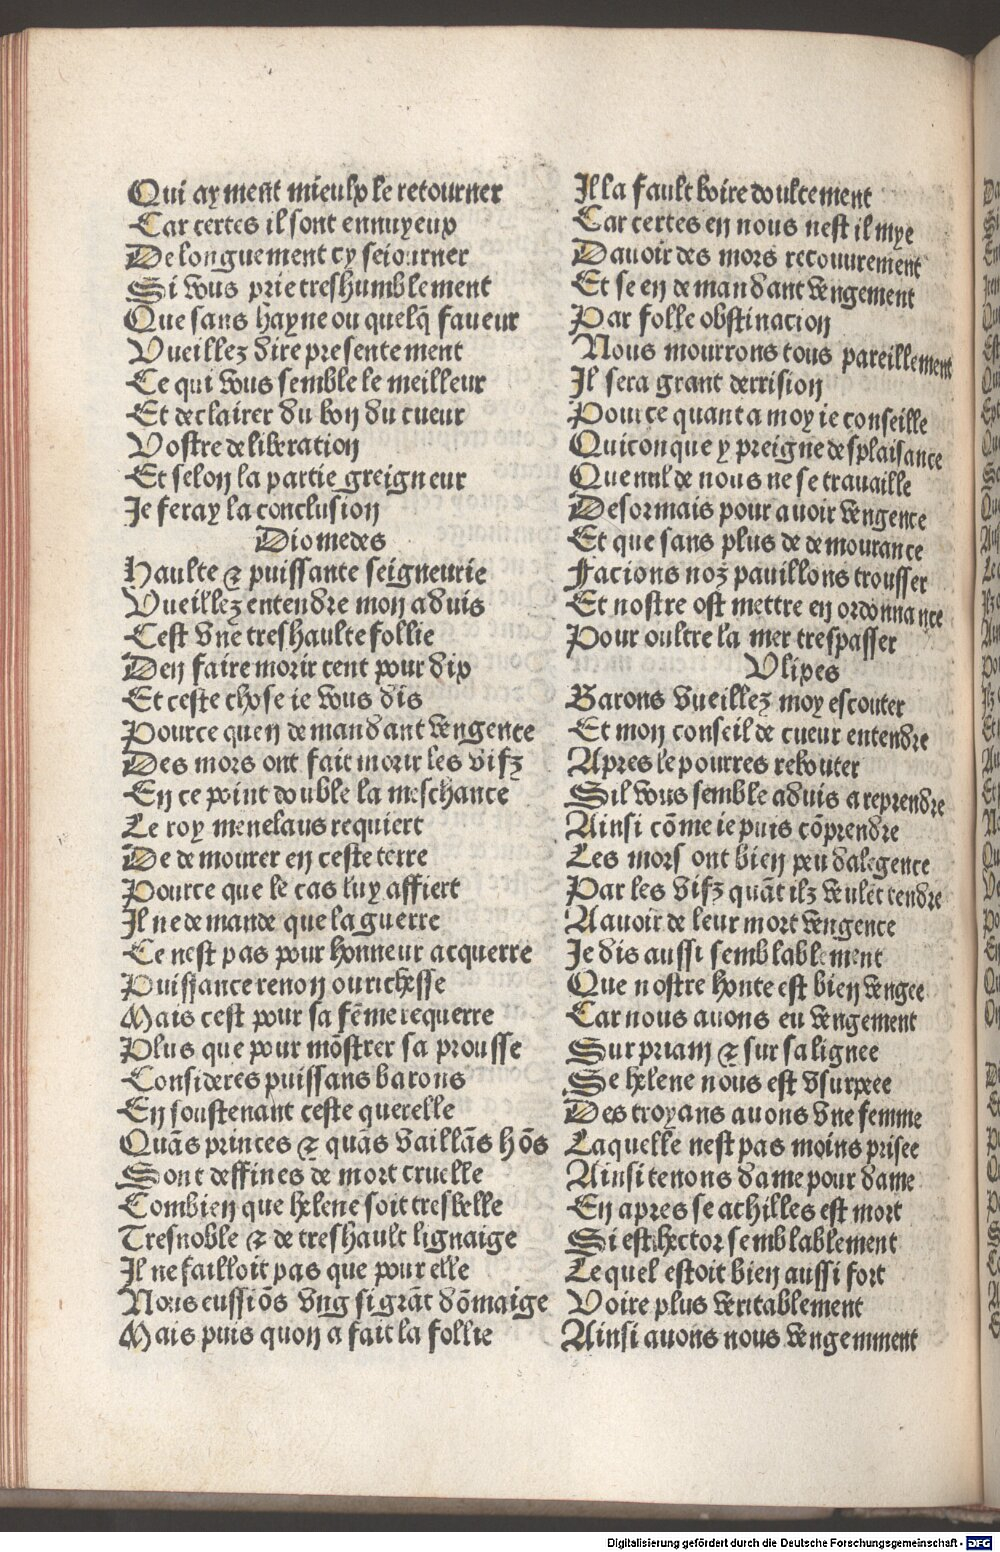 Qui ayment mieulx le retourner
Car certes il sont ennuyeux
De longuement cy seiourner
Si vous prie treshumblement
Que sans hayne ou quelq̃ faueur
Vueillez dire presentement
Ce qui vous semble le meilleur
Et declairer du bon du cueur
Vostre deliberation
Et selon la partie greigneur
Je feray la conclusion
Diomedes
Haulte & puissante seigneurie
Vueillez entendre mon aduis
Cest vne treshaulte follie
Den faire morir cent pour dix
Et ceste chose ie vous dis
Pource quen demandant vengence
Des mors ont fait morir les vifz
En ce point double la meschance
Le roy menelaus requiert
De demourer en ceste terre
Pource que le cas luy affiert
Il ne demande que la guerre
Ce nest pas pour honneur acquerre
Puissance renon ou richesse
Mais cest pour sa fẽme requerre
Plus que pour mõstrer sa prousse
Consideres puissans barons
En soustenant ceste querelle
Quãs princes & quãs vaillãs hõs
Sont deffines de mort cruelle
Combien que helene soit tresbelle
Tresnoble & de treshault lignaige
Il ne failloit pas que pour elle
Nous eussiõs vng si grãt dõmaige
Mais puis quon a fait la follie
Il la fault boire doulcement
Car certes en nous nest il mye
Dauoir des mors recouurement
Et se en demandant vengement
Par folle obstinacion
Nous mourrons tous pareillement
Il sera grant derrision
Pource quant a moy ie conseille
Quiconque y preigne desplaisance
Que nul de nous ne se trauaille
Desormais pour auoir vengence
Et que sans plus de demourance
Facions noz pauillons trousser
Et nostre ost mettre en ordonnance
Pour oultre la mer trespasser
Vlixes
Barons vueillez moy escouter
Et mon conseil de cueur entendre
Apres le pourres rebouter
Sil vous semble aduis a reprendre
Ainsi cõme ie puis cõprendre
Les mors ont bien peu dalegence
Par les vifz quãt ilz veulẽt tendre
A auoir de leur mort vengence
Je dis aussi semblablement
Que nostre honte est bien vengee
Car nous auons eu vengement
Sur priam & sur sa lignee
Se helene nous est vsurpee
Des troyans auons vne femme
Laquelle nest pas moins prisee
Ainsi tenons dame pour dame
En apres se achilles est mort
Si est hector semblablement
Lequel estoit bien aussi fort
Voire plus veritablement
Ainsi auons nous vengemment
Digitalisierung gefördert durch die Deutsche Forschungsgemeinschaft - DFG